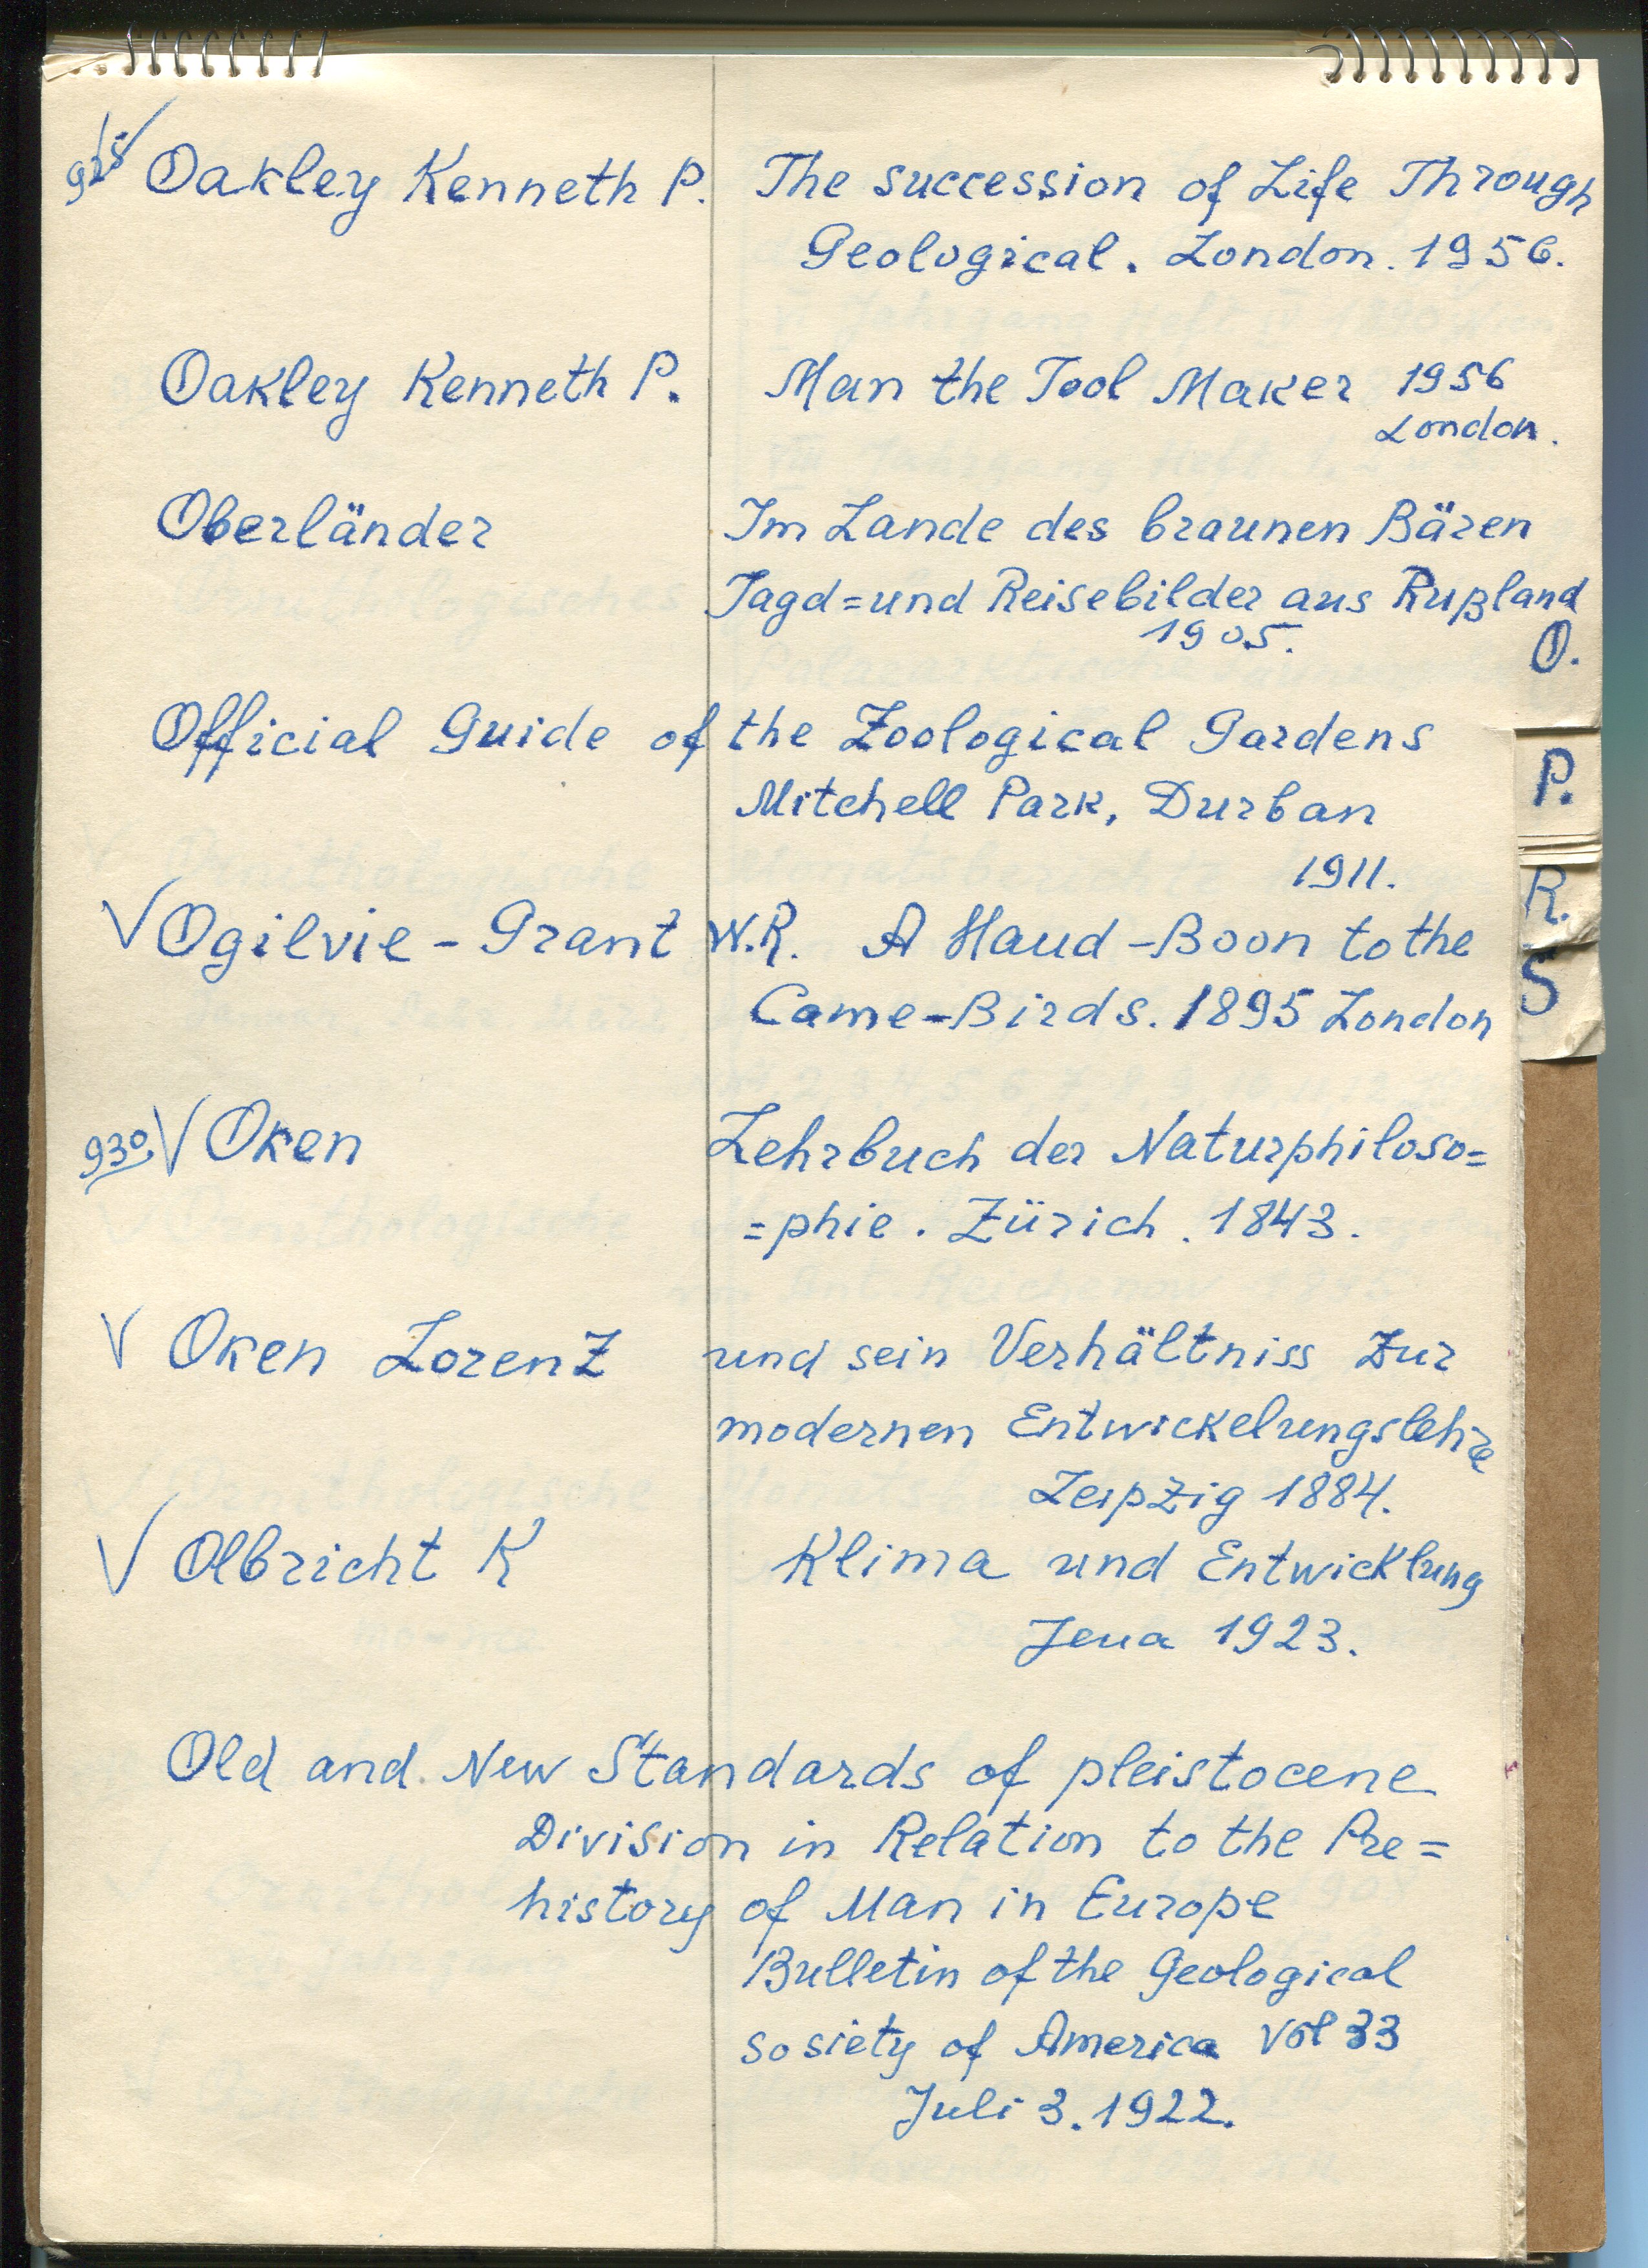 925 √ Oakley Kenneth P. The succession of Life Through
Geological. London. 1956.
Oakley Kenneth P. Man the Tool Maker 1956
London.
Oberländer Im Lande des braunen Bären
Jagd=und Reisebilder aus Rußland
1905.
O.
Official Guide of the Zoological Gardens
Mitchell Park, Durban
P.
1911.
R.
√ Ogilvie - Grant W.R. A Haud-Boon to the
S
Came-Birds. 1895 London
930 √ Oken Lehrbuch der Naturphiloso=
=phie. Zürich. 1843.
√ Oken Lorenz und sein Verhältniss zur
modernen Entwickelungslehre
Leipzig 1884.
√ Olbricht K Klima und Entwicklung
Jena 1923.
Old and New Standards of pleistocene
Division in Relation to the Pre=
history of Man in Europe
Bulletin of the Geological
sosiety of America Vol 33
Juli 3. 1922.